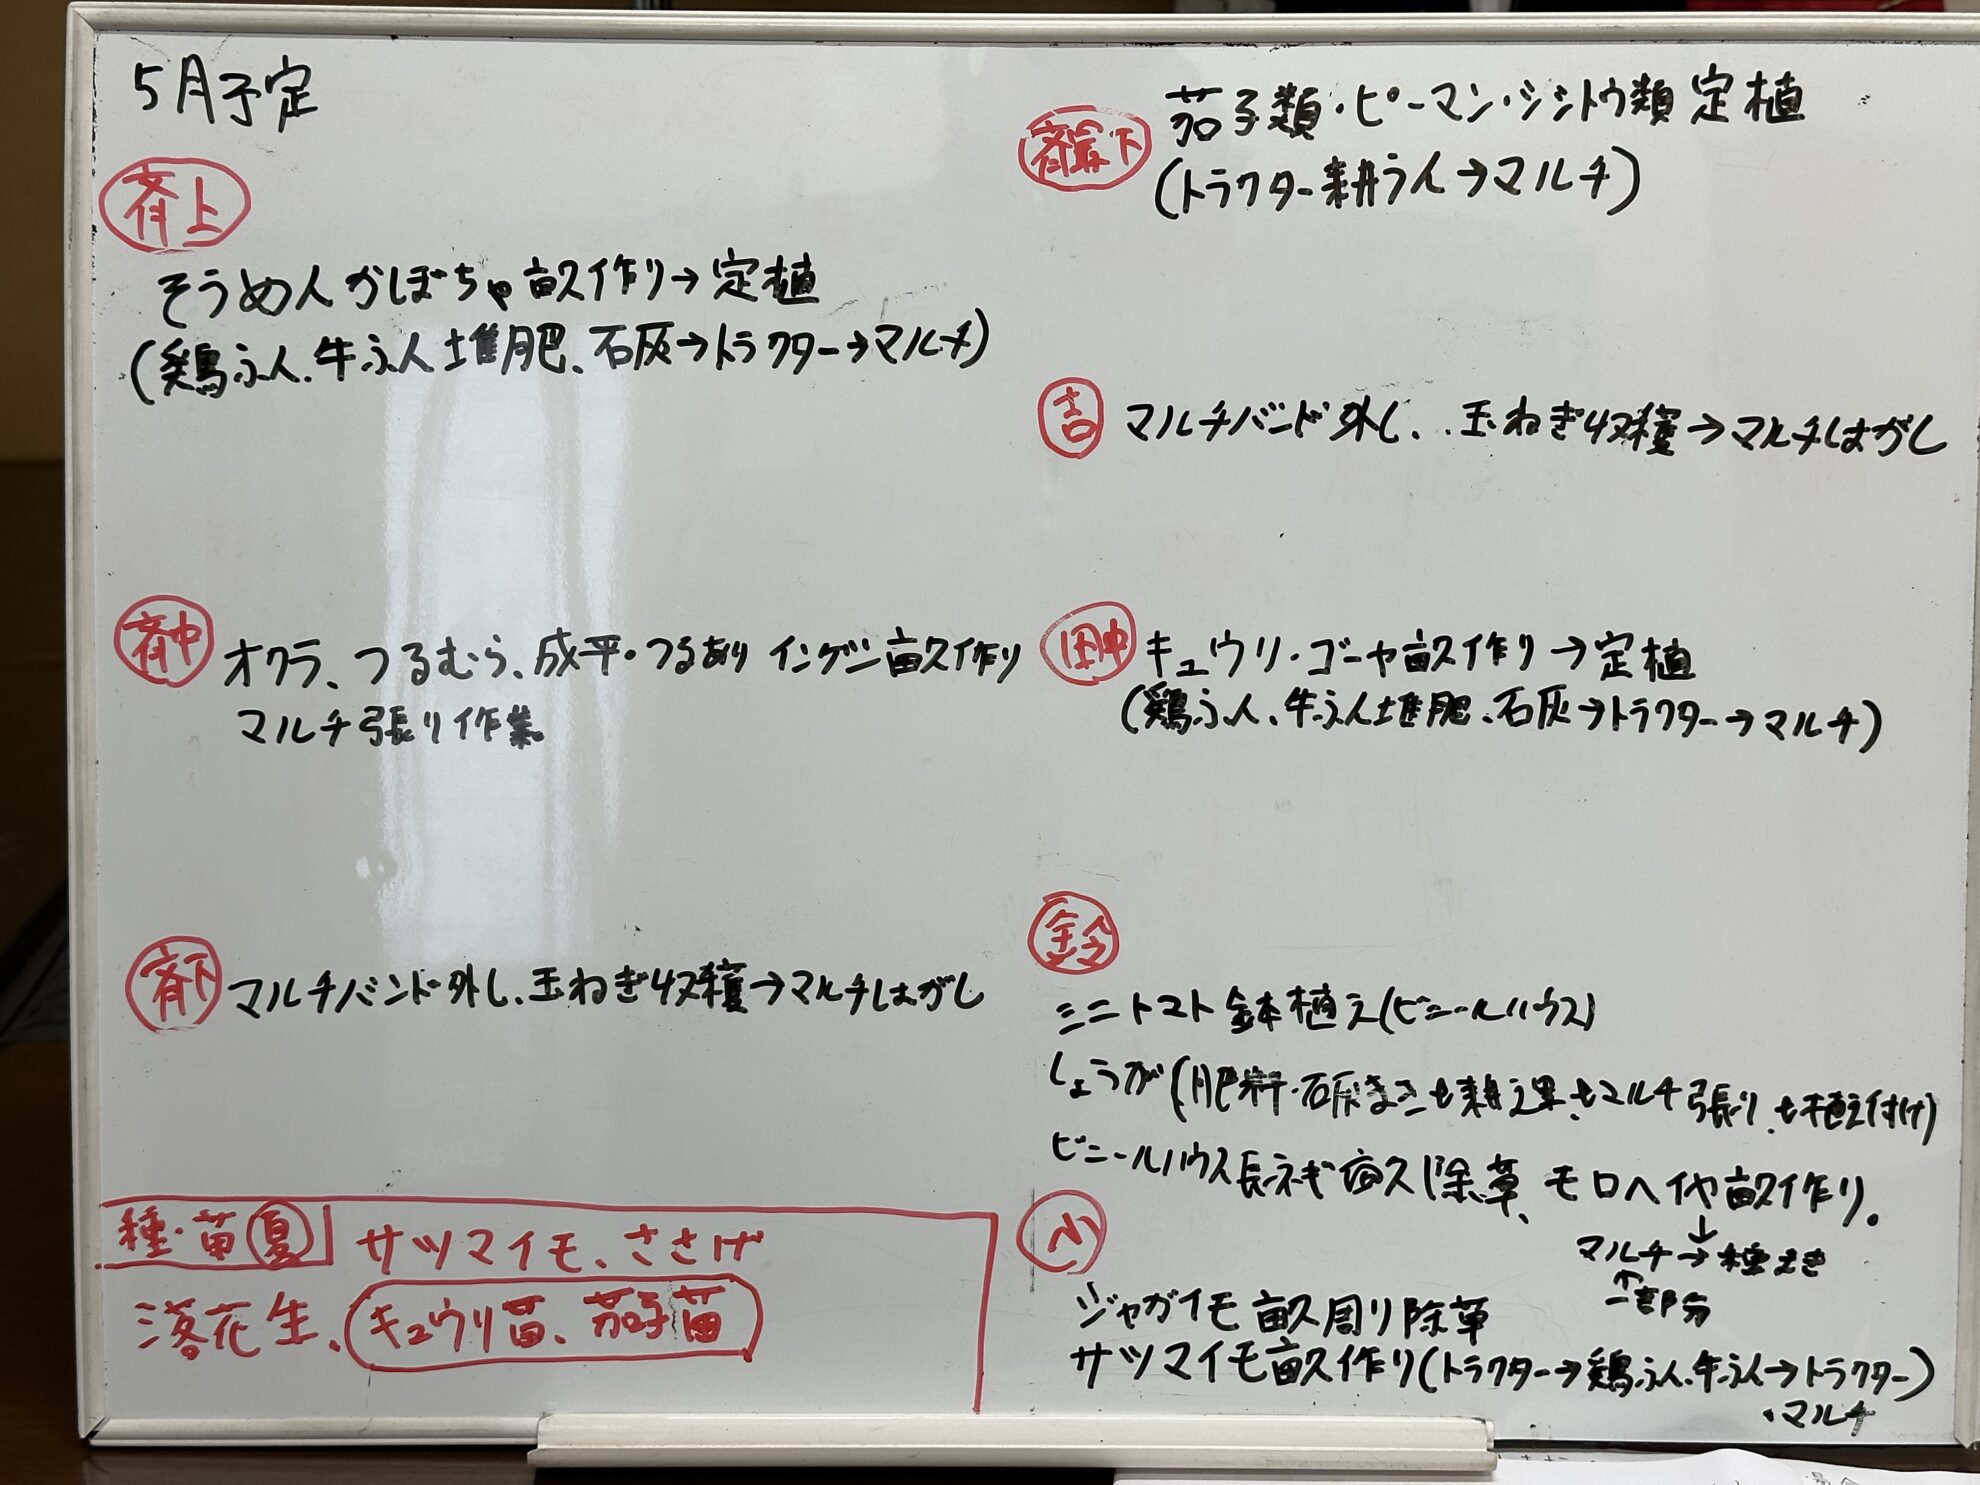 5月予定
斉上
そうめんかぼちゃ畝作り→定植
(鶏ふん、牛ふん堆肥、石灰→トラクター→マルチ)
斉中
オクラ、つるむら、成平・つるありインゲン畝作り
マルチ張り作業
斉下
マルチバンド外し、玉ねぎ収穫→マルチはがし
種・苗 夏
サツマイモ、ささげ
落花生、キュウリ苗、茄子苗
下
茄子類・ピーマン・シシトウ類 定植
(トラクター耕うん→マルチ)
吉
マルチバンド外し、玉ねぎ収穫→マルチはがし
田中
キュウリ・ゴーヤ畝作り→定植
(鶏ふん、牛ふん堆肥、石灰→トラクター→マルチ)
鈴
ミニトマト鉢植え(ビニールハウス)
しょうが(肥料・石灰まき、マルチ張り、植え付け)
ビニールハウス長ネギ畝除草、モロヘイヤ畝作り。
↓
マルチ→種まき
↑
一部分
小
ジャガイモ畝周り除草
サツマイモ畝作り(トラクター→鶏ふん、牛ふん→トラクター)
・マルチ